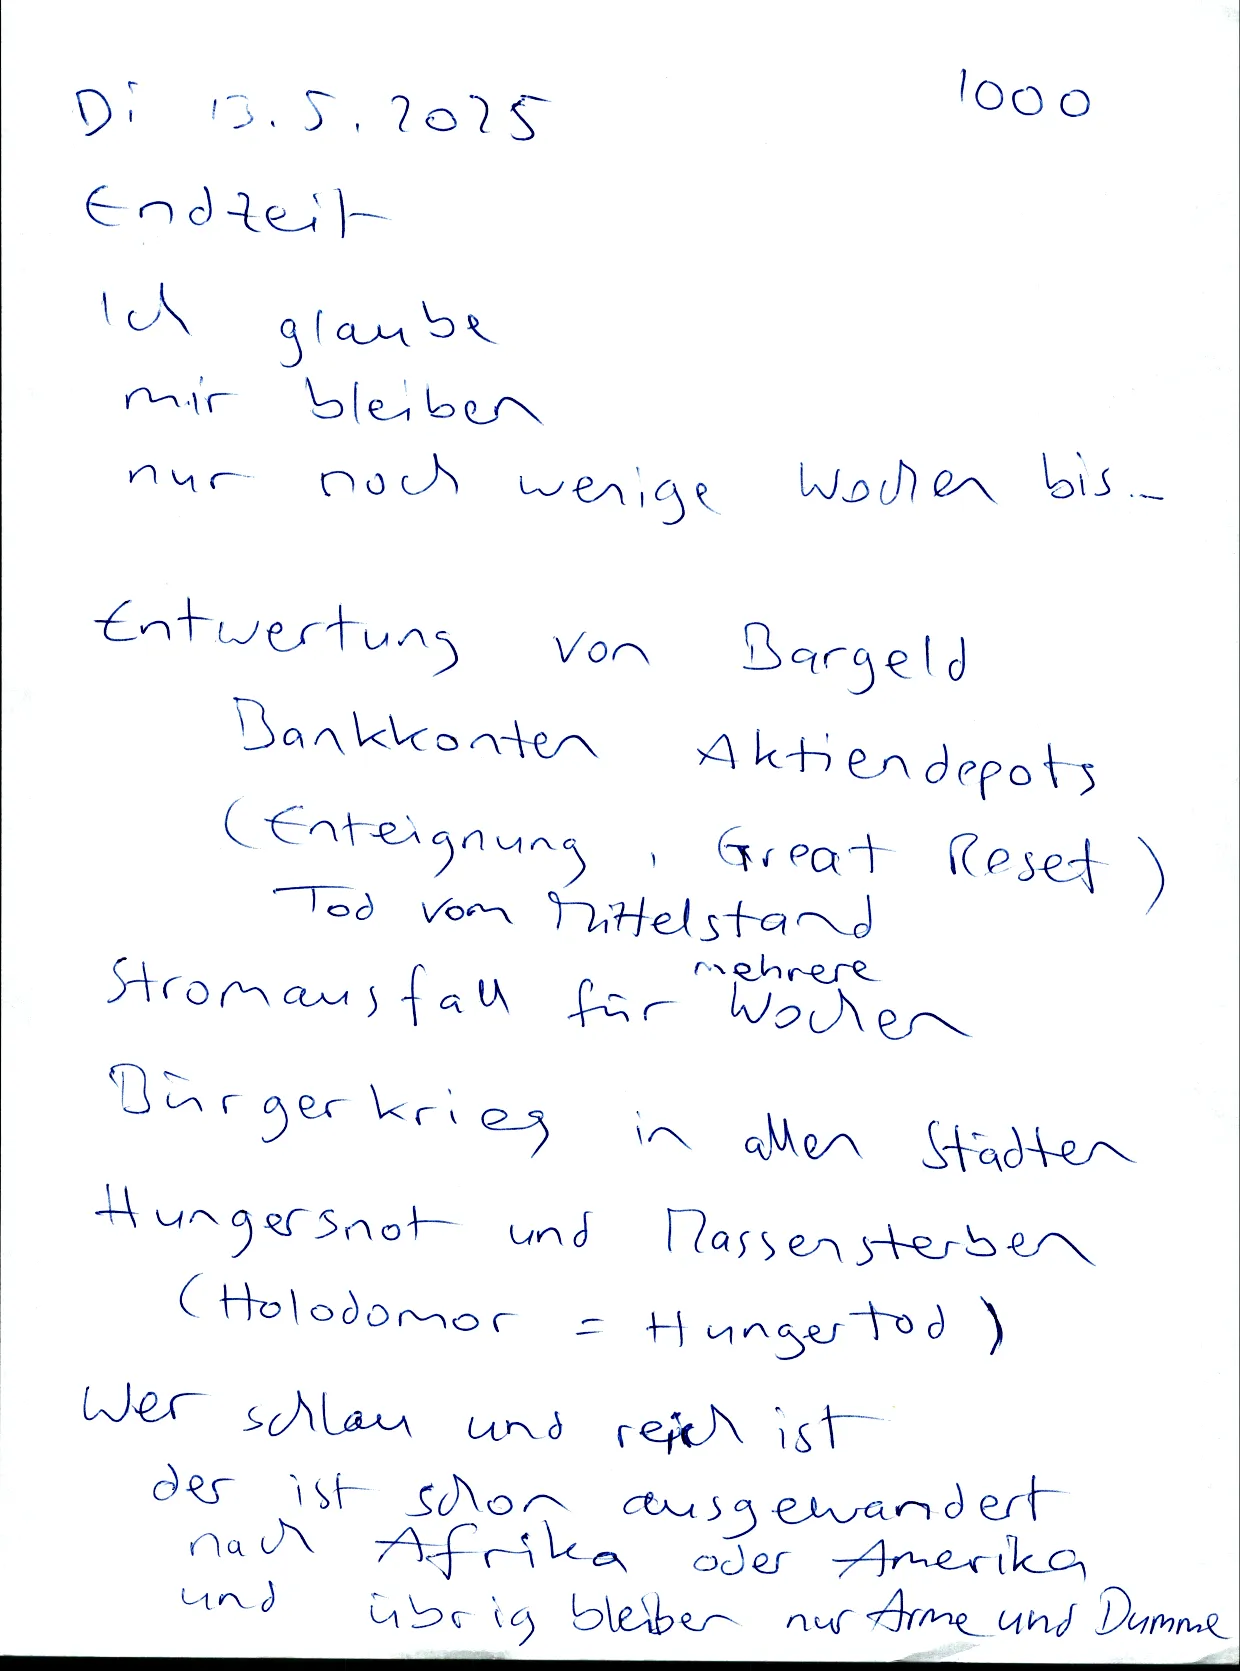 Di 13.5.2025 1000
Endzeit
Ich glaube
mir bleiben
nur noch wenige Wochen bis...
Entwertung von Bargeld
Bankkonten Aktiendepots
(Enteignung, Great Reset)
Tod vom Mittelstand
mehrere
Stromausfall für Wochen
Bürgerkrieg in allen Städten
Hungersnot und Massensterben
(Holodomor = Hungertod)
Wer schlau und reich ist
der ist schon ausgewandert
nach Afrika oder Amerika
und übrig bleiben nur Arme und Dumme